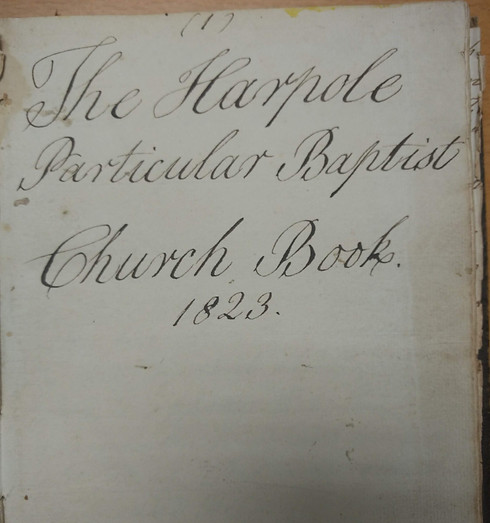 (1)
The Harpole
Particular Baptist
Church Book.
1823.